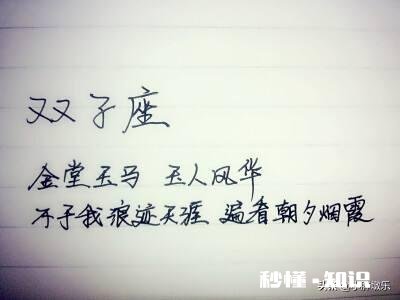 双子座
金堂玉马 玉人风华
不予我浪迹天涯 遍看朝夕烟霞
秒懂·知识